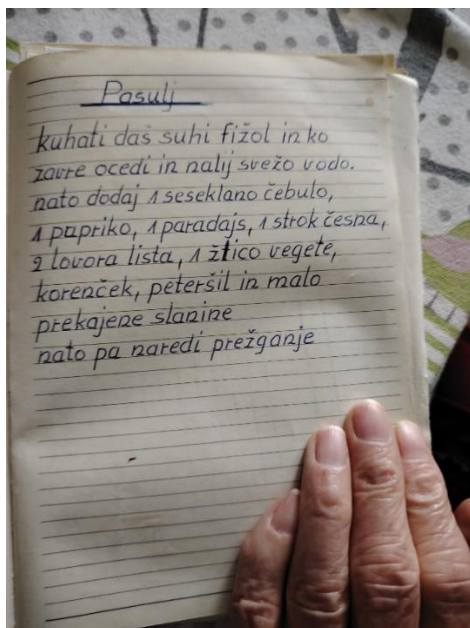 Pasulj
kuhati daš suhi fižol in ko
zavre ocedi in nalij svežo vodo.
nato dodaj 1 seseklano čebulo,
1 papriko, 1 paradajs, 1 strok česna,
2 lovora lista, 1 žlico vegete,
korenček, peteršil in malo
prekajene slanine
nato pa naredi prežganje